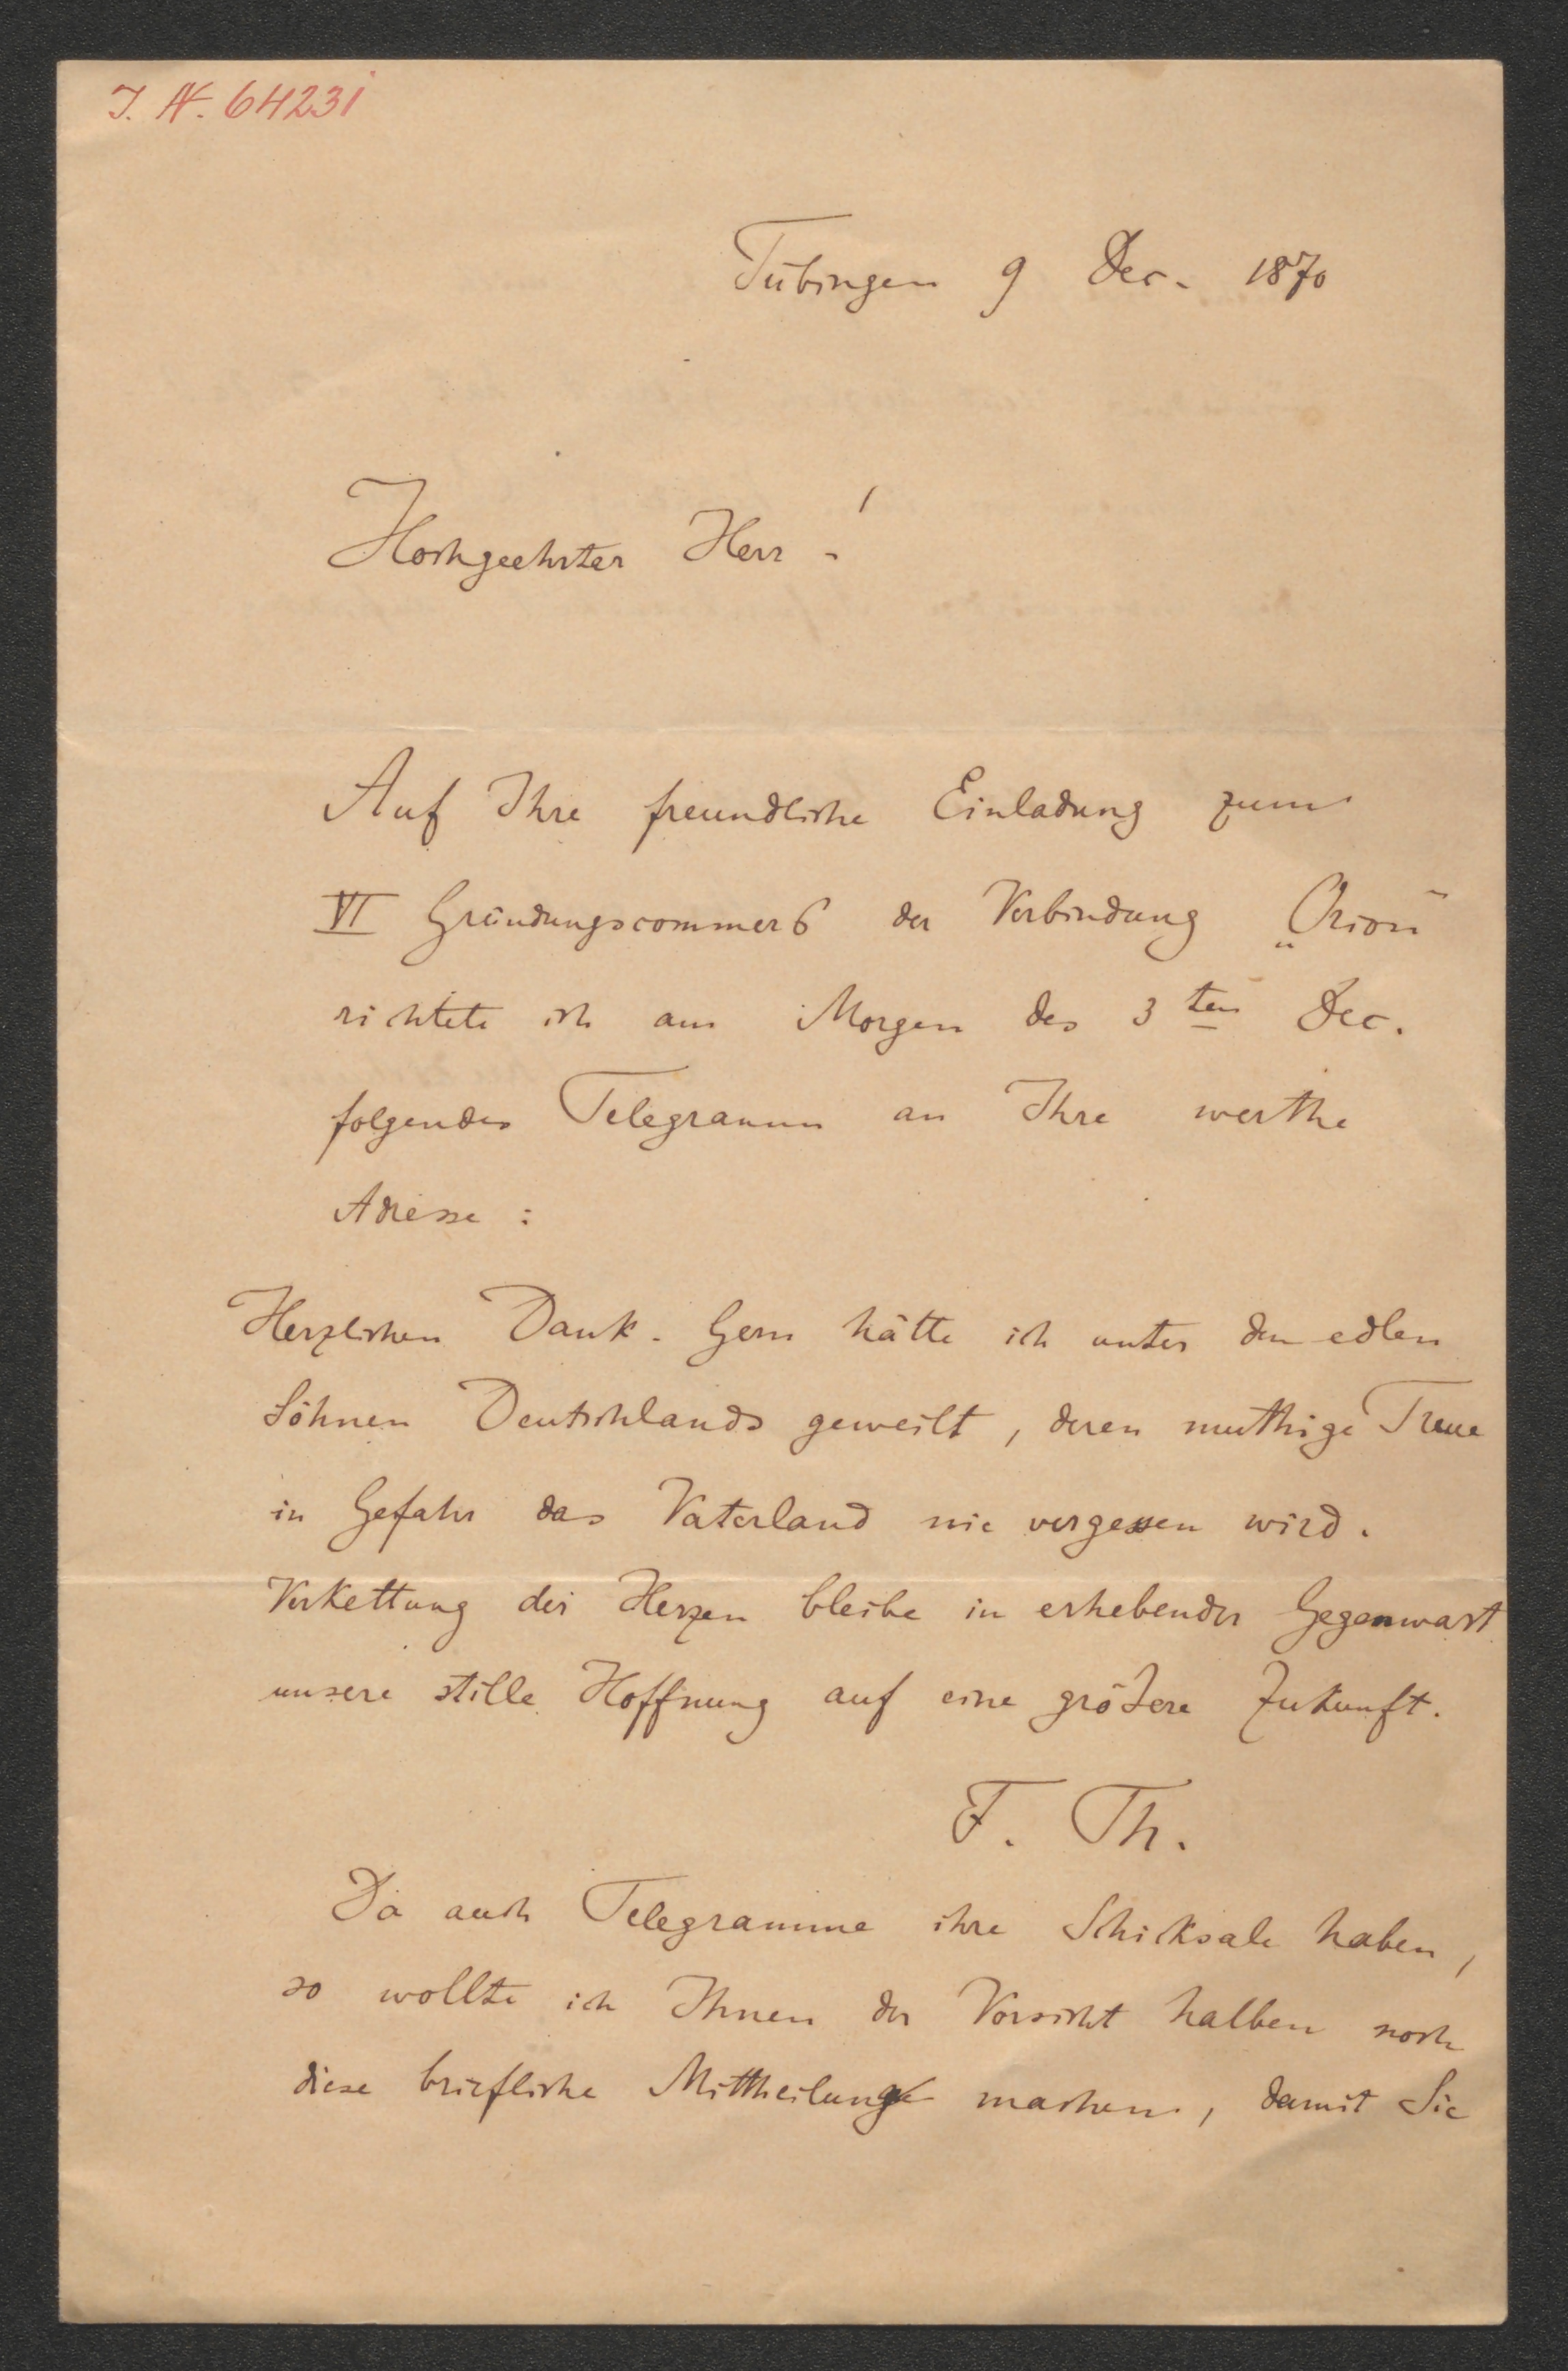 I. N. 64231
Tübingen 9 Dec. 1870
Hochgeehrter Herr!
Auf Ihre freundliche Einladung zum
VI Gründungscommers der Verbindung „Orion“
richtete ich am Morgen des 3ten Dec.
folgendes Telegramm an Ihre werthe
Adresse:
Herzlichen Dank. Gern hätte ich unter den edlen
Söhnen Deutschlands geweilt, deren muthige Treue
in Gefahr das Vaterland nie vergessen wird.
Verkettung der Herzen bleibe in erhebender Gegenwart
unsere stille Hoffnung auf eine größere Zukunft.
F. Th.
Da auch Telegramme ihre Schicksale haben,
so wollte ich Ihnen der Vorsicht halben noch
diese briefliche Mittheilung machen, damit Sie